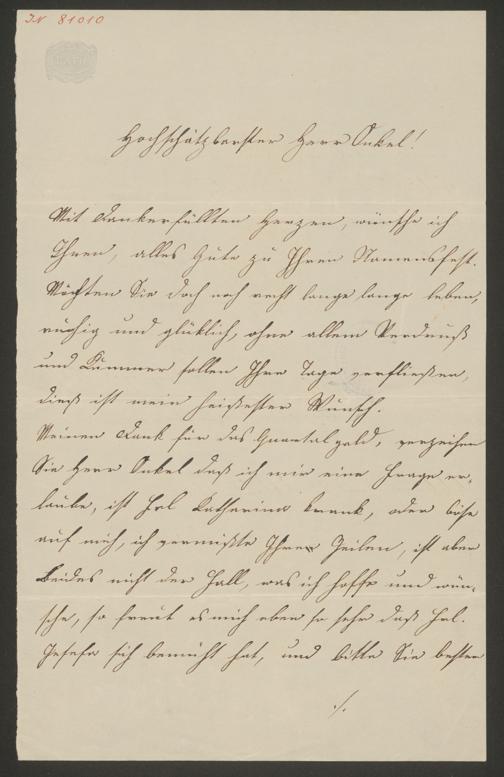 IN 81010
Hochschätzbarster Herr Onkel!
Mit Dankerfüllten Herzen, wünsche ich
Ihnen, alles Gute zu Ihren Namensfest.
Möchten Sie doch noch recht lange lange leben,
ruhig und glüklich, ohne allem Verdruß
und Kummer sollen Ihre Tage verfließen,
dieß ist mein heißester Wunsch.
Meinen Dank für das Quartalgeld, verzeihen
Sie Herr Onkel daß ich mir eine Frage er-
laube, ist Frl Katharina krank, oder böse
auf mich, ich vermißte Ihre Zeilen, ist aber
Beides nicht der Fall, was ich hoffe und wün-
sche, so freut es mich eben so sehr daß Frl.
Josefa sich bemüht hat, und bitte Sie besten
./.